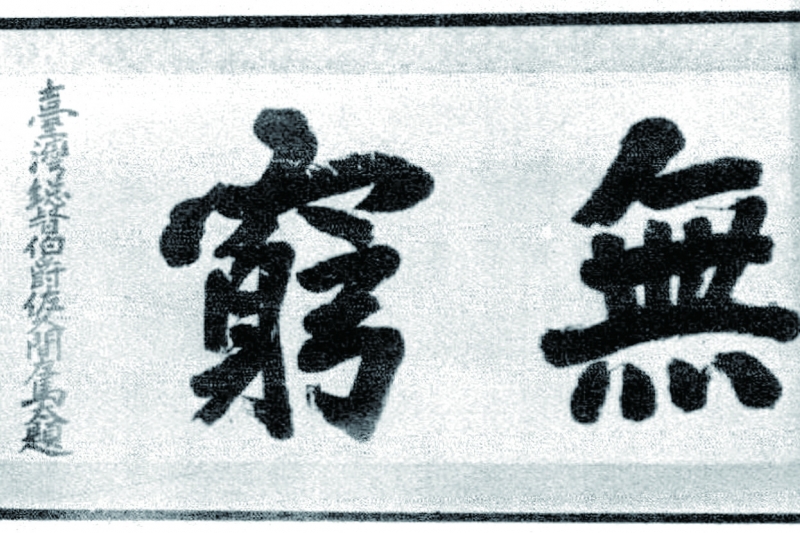 無窮
臺灣総督伯爵佐久間左馬太題